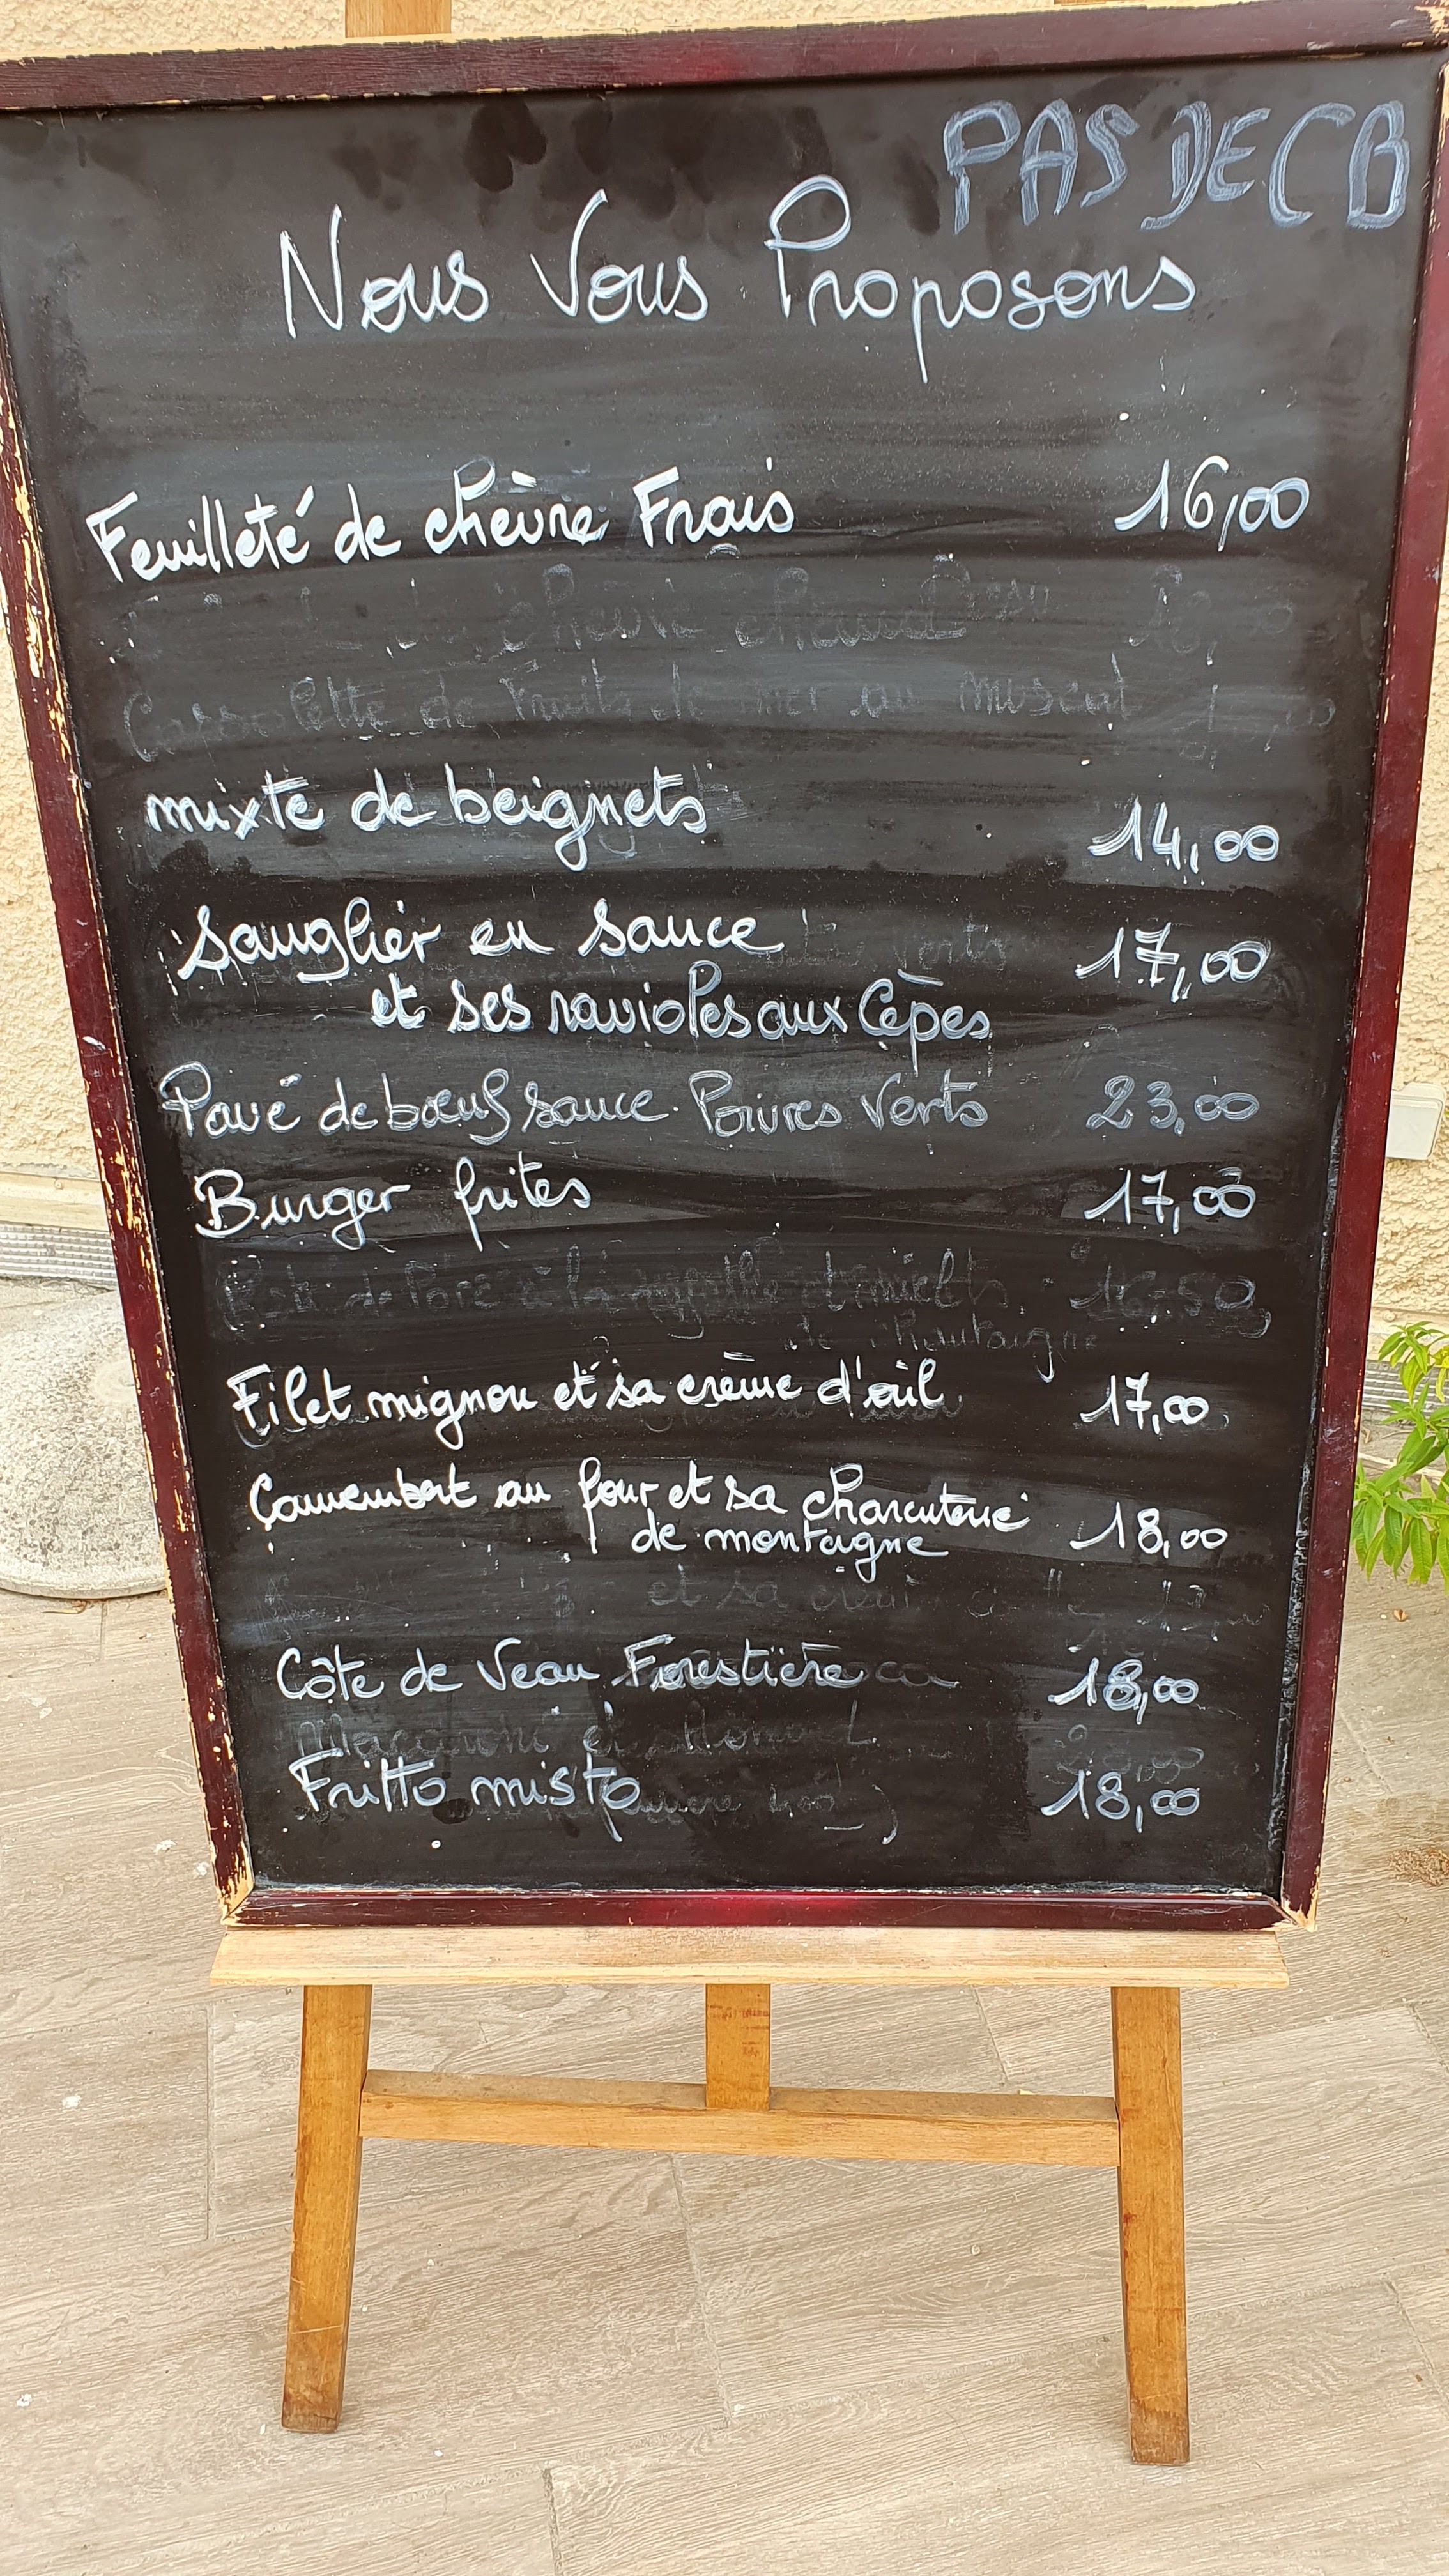 PAS DE CB
Nous Vous Proposons
Feuilleté de chèvre Frais 16,00
mixte de beignets 14,00
Sanglier en sauce 17,00
et ses ravioles aux Cèpes
Pavé de bœuf sauce Poivres Verts 23,00
Burger frites 17,00
Filet mignon et sa crème d'ail 17,00
Camembert au four et sa charcuterie 18,00
de montagne
Côte de Veau Forestière 18,00
Fritto misto 18,00